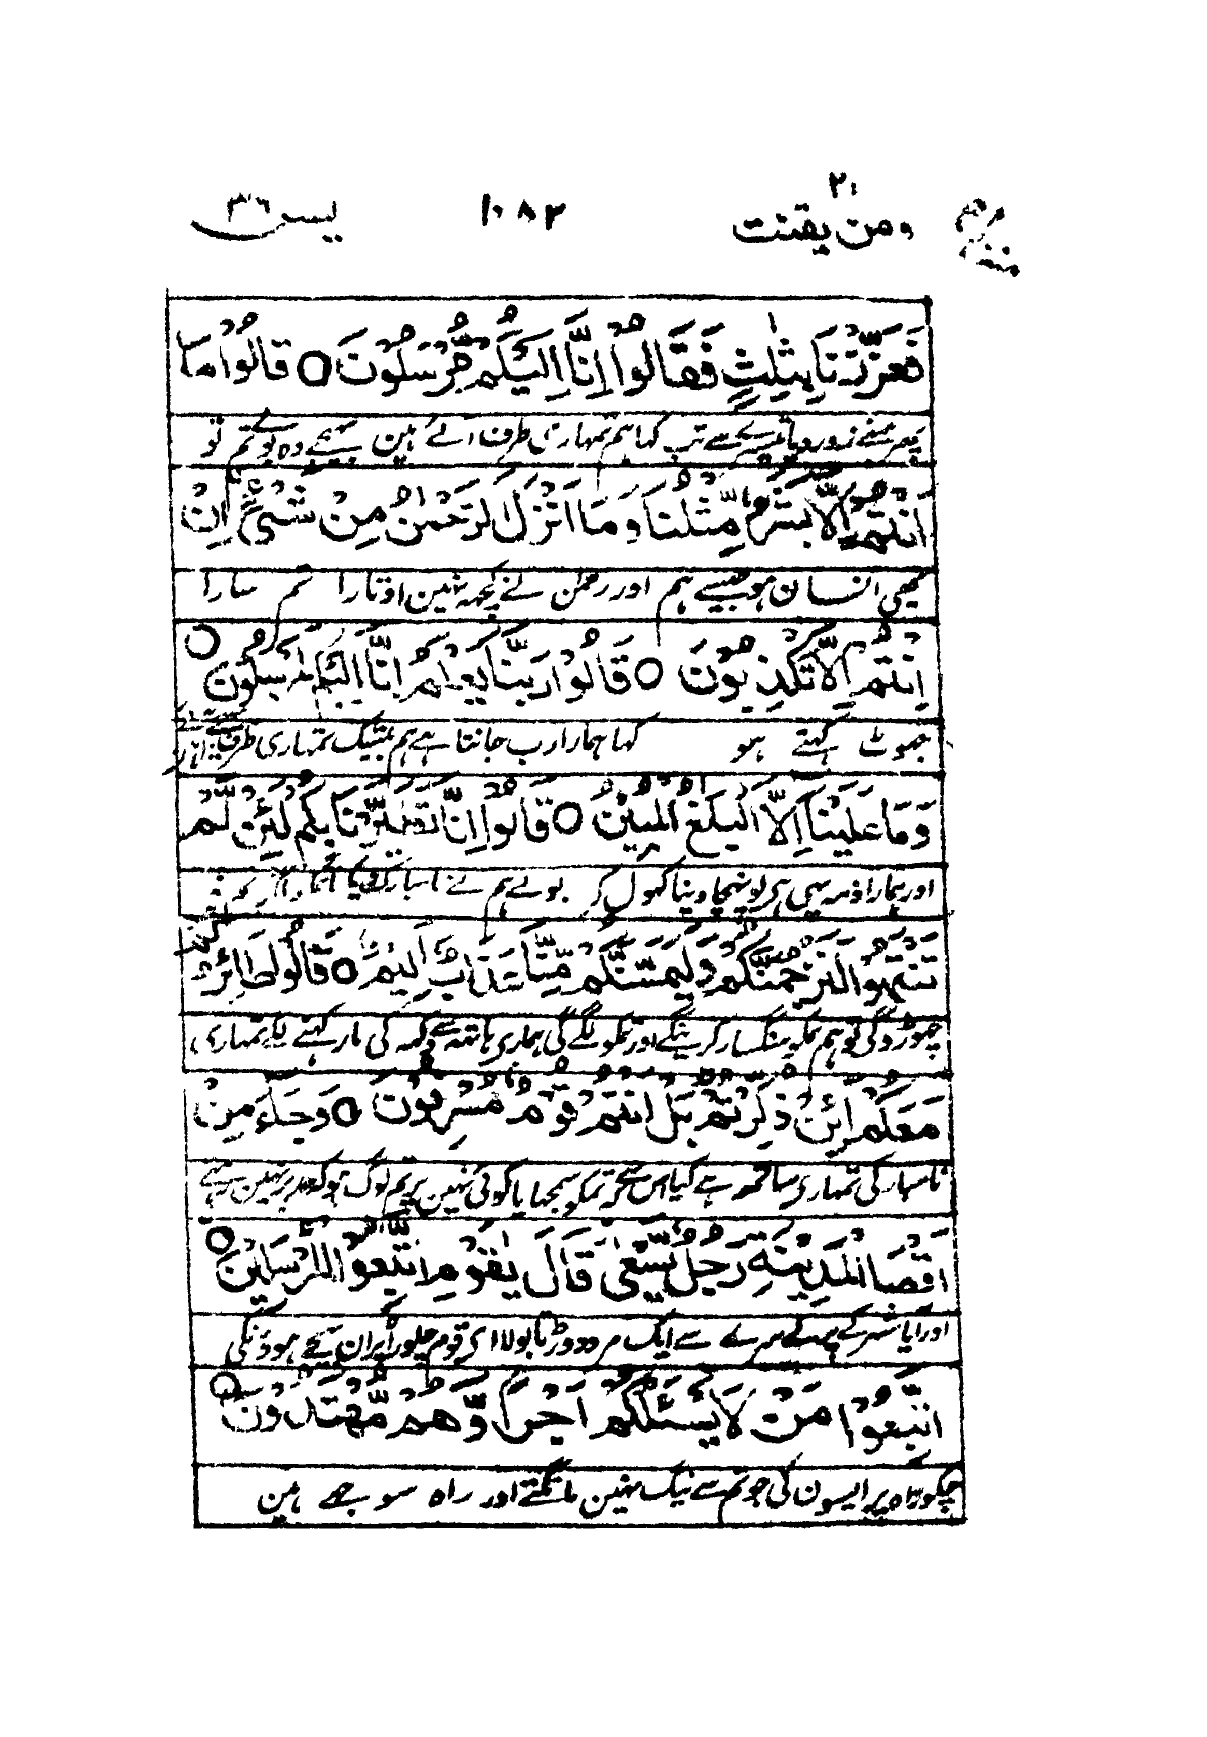 ومن یقنت ٢٠ ١٠٨٢ یٰسٓ ٣٦
فَعَزَّزْنَا بِثَالِثٍ فَقَالُوْۤا اِنَّاۤ اِلَیْكُمْ مُّرْسَلُوْنَ ○ قَالُوْا مَاۤ
پھر ہمنے زور دیا تیسرے سے تب کہا ہم تمہاری طرف آئے ہین بھیجے وہ بولے تم تو
اَنْتُمْ اِلَّا بَشَرٌ مِّثْلُنَا وَمَاۤ اَنْزَلَ الرَّحْمٰنُ مِنْ شَیْءٍ اِنْ
یہی انسان ہو جیسے ہم اور رحمٰن نے کچھ نہین اوتارا تم سارا
اَنْتُمْ اِلَّا تَكْذِبُوْنَ ○ قَالُوْا رَبُّنَا یَعْلَمُ اِنَّاۤ اِلَیْكُمْ لَمُرْسَلُوْنَ ○
جھوٹ کہتے ہو کہا ہمارا رب جانتا ہے ہم بیشک تمہاری طرف
وَمَا عَلَیْنَاۤ اِلَّا الْبَلٰغُ الْمُبِیْنُ ○ قَالُوْۤا اِنَّا تَطَیَّرْنَا بِكُمْ لَئِنْ لَّمْ
اور ہمارا ذمہ یہی ہی پونہچا دینا کھول کر بولے ہم نے نامبارک
تَنْتَهُوْا لَنَرْجُمَنَّكُمْ وَلَیَمَسَّنَّكُمْ مِّنَّا عَذَابٌ اَلِیْمٌ ○ قَالُوْا طَآئِرُ
چھوڑوگی تو ہم تمکو سنگسار کرینگے اور تمکو لگے گی ہماری ہاتھ سے دکھ کی مار کہنے لگے تمہاری
مَّعَكُمْ اَئِنْ ذُكِّرْتُمْ بَلْ اَنْتُمْ قَوْمٌ مُّسْرِفُوْنَ ○ وَجَآءَ مِنْ
نامبارکی تمہاری ساتھ ہے کیا اس سے کہ تمکو سمجھایا کوئی نہین پر تم لوگ ہو کہ حد پر نہین رہتے
اَقْصَا الْمَدِیْنَةِ رَجُلٌ یَّسْعٰی قَالَ یٰقَوْمِ اتَّبِعُوا الْمُرْسَلِیْنَ ○
اور آیا شہر کے پرلے سرے سے ایک مرد دوڑتا بولا ای قوم چلو راہ پر ان بھیجے ہوونکی
اتَّبِعُوْا مَنْ لَّا یَسْئَلُكُمْ اَجْرًا وَّهُمْ مُّهْتَدُوْنَ ○
چلو راہ پر ایسون کی جو تم سے نیگ نہین مانگتے اور راہ سوجھے ہین